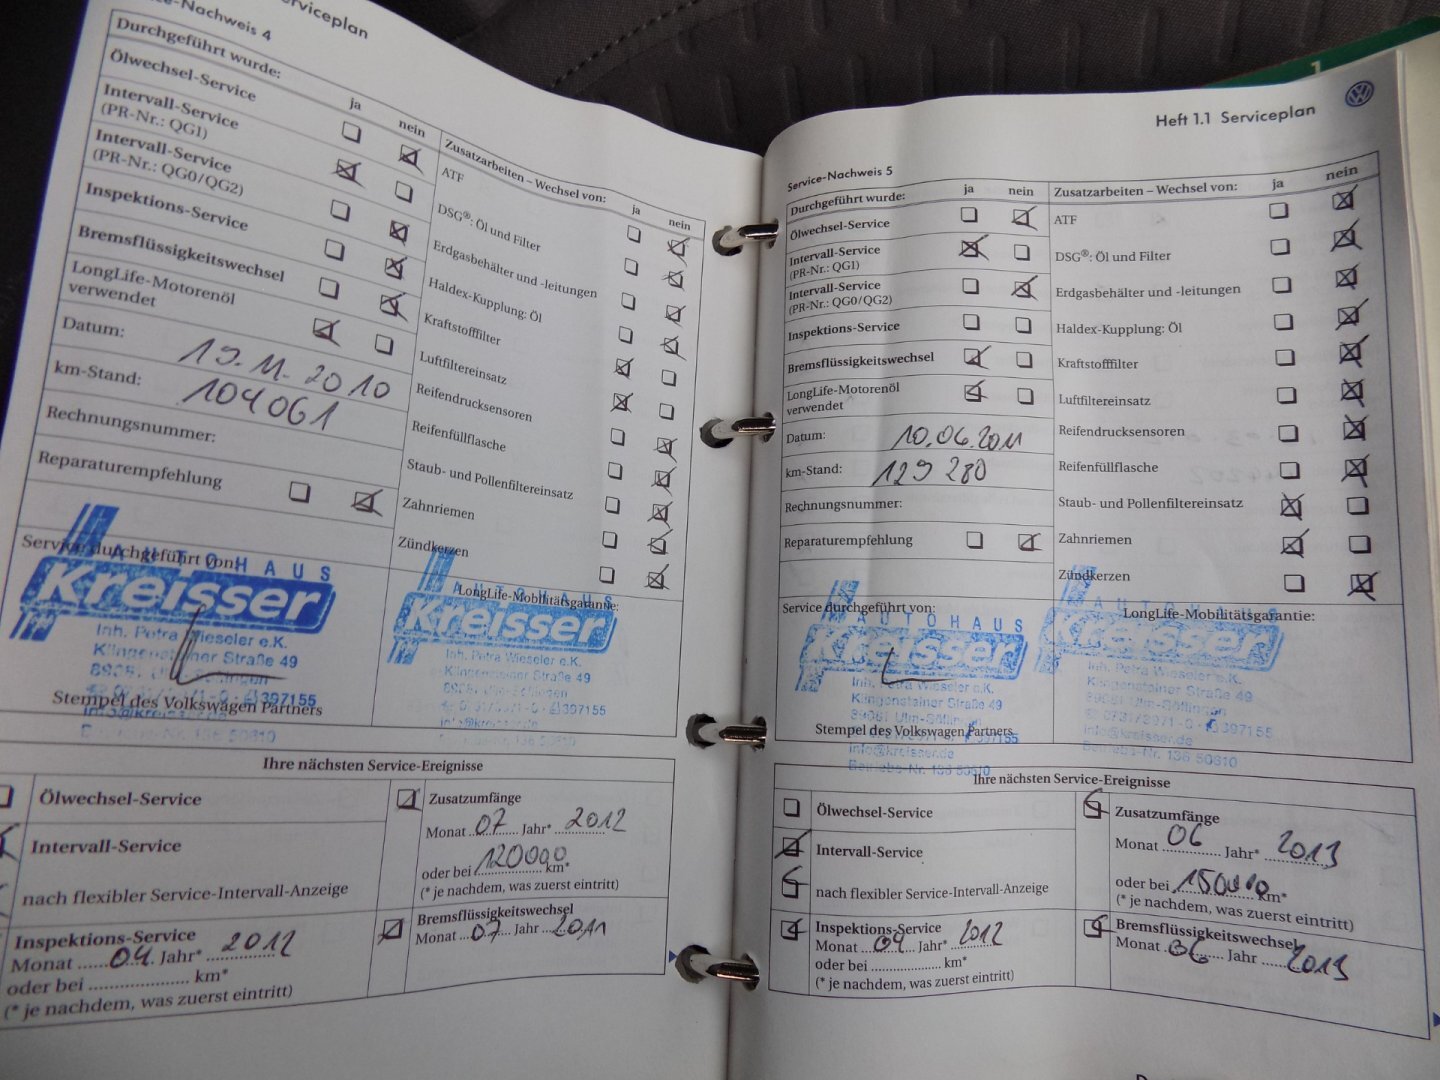 Serviceplan
Service-Nachweis 4
Durchgeführt wurde:
ja nein
Ölwechsel-Service
Intervall-Service
(PR-Nr.: QG1)
Intervall-Service
(PR-Nr.: QG0/QG2)
Inspektions-Service
Bremsflüssigkeitswechsel
LongLife-Motorenöl
verwendet
Datum: 19.11.2010
km-Stand: 104061
Rechnungsnummer:
Reparaturempfehlung
Zusatzarbeiten – Wechsel von:
ja nein
ATF
DSG®: Öl und Filter
Erdgasbehälter und -leitungen
Haldex-Kupplung: Öl
Kraftstofffilter
Luftfiltereinsatz
Reifendrucksensoren
Reifenfüllflasche
Staub- und Pollenfiltereinsatz
Zahnriemen
Zündkerzen
Service durchgeführt von:
AUTOHAUS
Kreisser
Inh. Petra Wieseler e.K.
Klingensteiner Straße 49
397155
Stempel des Volkswagen Partners
LongLife-Mobilitätsgarantie:
AUTOHAUS
Kreisser
Inh. Petra Wieseler e.K.
Klingensteiner Straße 49
397155
Ihre nächsten Service-Ereignisse
Ölwechsel-Service
Intervall-Service
nach flexibler Service-Intervall-Anzeige
Inspektions-Service
Monat 04 Jahr* 2012
oder bei km*
(* je nachdem, was zuerst eintritt)
Zusatzumfänge
Monat 07 Jahr* 2012
oder bei 120000 km*
(* je nachdem, was zuerst eintritt)
Bremsflüssigkeitswechsel
Monat 07 Jahr 2011
1
Heft 1.1 Serviceplan
Service-Nachweis 5
Durchgeführt wurde: ja nein
Ölwechsel-Service
Intervall-Service
(PR-Nr.: QG1)
Intervall-Service
(PR-Nr.: QG0/QG2)
Inspektions-Service
Bremsflüssigkeitswechsel
LongLife-Motorenöl
verwendet
Datum: 10.06.2011
km-Stand: 129 280
Rechnungsnummer:
Reparaturempfehlung
Zusatzarbeiten – Wechsel von: ja nein
ATF
DSG®: Öl und Filter
Erdgasbehälter und -leitungen
Haldex-Kupplung: Öl
Kraftstofffilter
Luftfiltereinsatz
Reifendrucksensoren
Reifenfüllflasche
Staub- und Pollenfiltereinsatz
Zahnriemen
Zündkerzen
Service durchgeführt von:
AUTOHAUS
Kreisser
Inh. Petra Wieseler e.K.
Klingensteiner Straße 49
89081 Ulm-Söflingen
Stempel des Volkswagen Partners
info@kreisser.de
LongLife-Mobilitätsgarantie:
AUTOHAUS
Kreisser
Inh. Petra Wieseler e.K.
Klingensteiner Straße 49
89081 Ulm-Söflingen
397155
info@kreisser.de
Betriebs-Nr. 136 50810
Ihre nächsten Service-Ereignisse
Ölwechsel-Service
Intervall-Service
nach flexibler Service-Intervall-Anzeige
Inspektions-Service
Monat 04 Jahr* 2012
oder bei km*
(* je nachdem, was zuerst eintritt)
Zusatzumfänge
Monat 06 Jahr* 2013
oder bei 150000 km*
(* je nachdem, was zuerst eintritt)
Bremsflüssigkeitswechsel
Monat 06 Jahr 2013